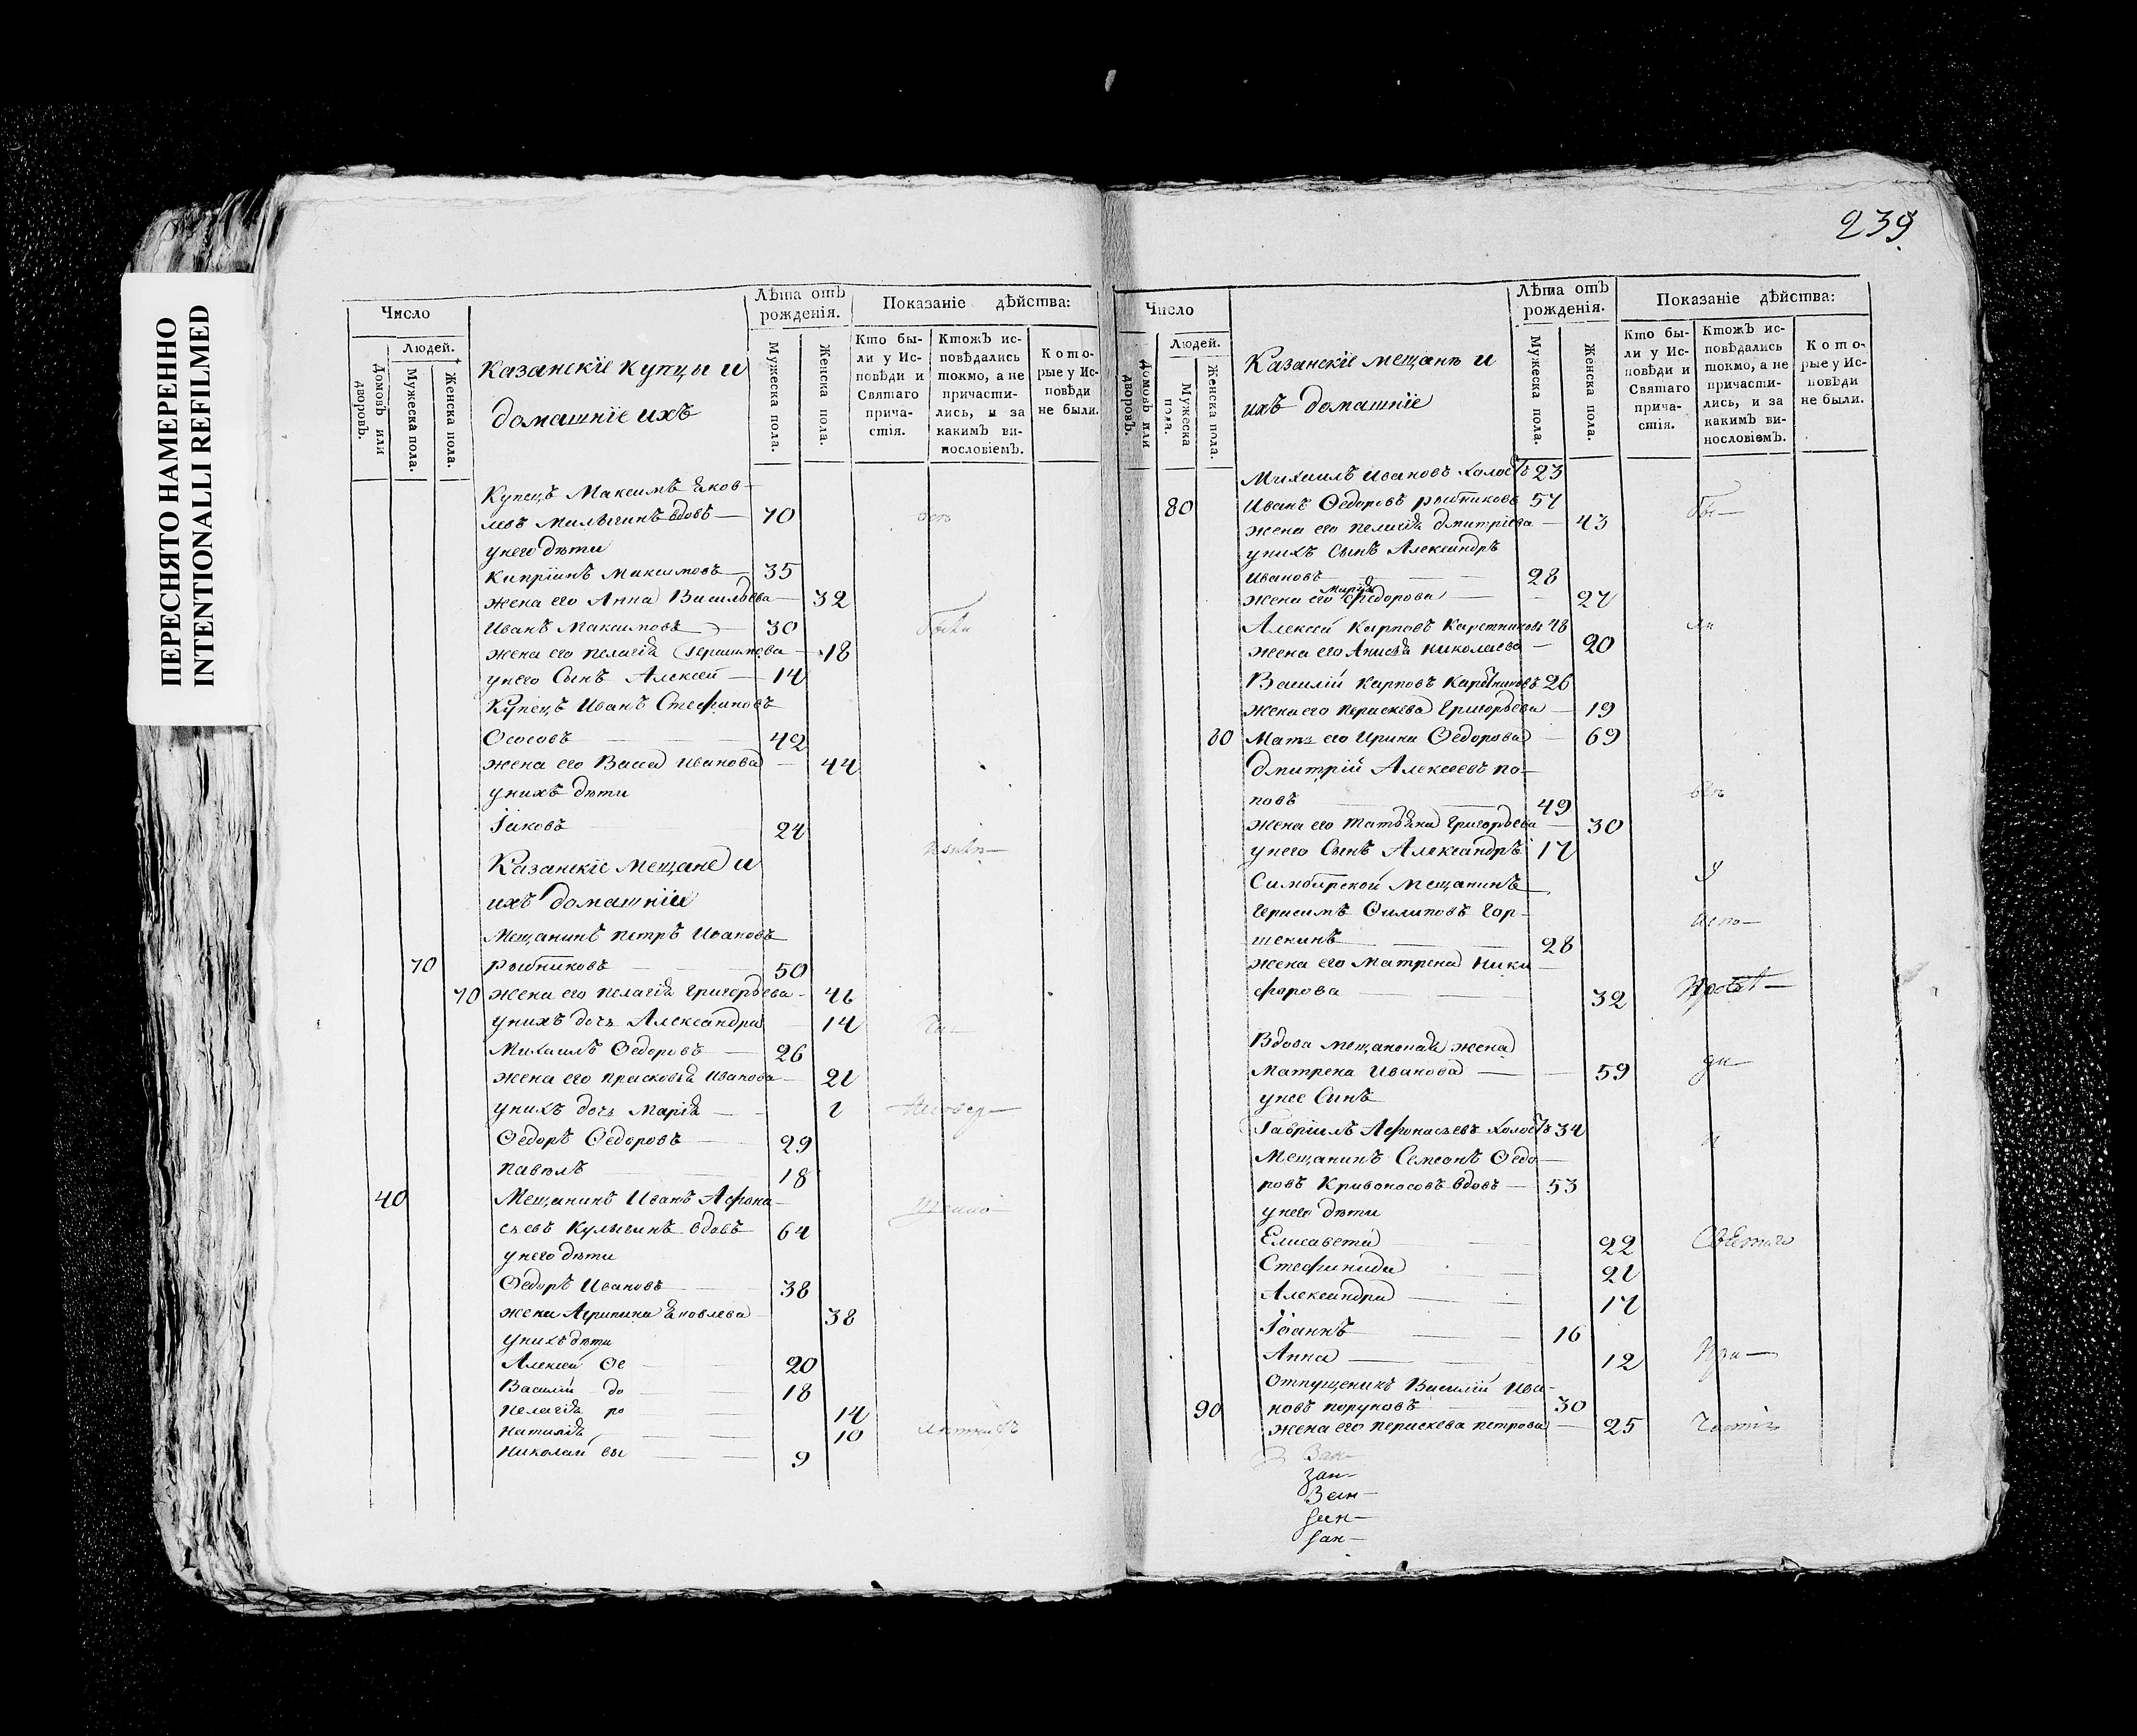 ПЕРЕСНЯТО НАМЕРЕННО
INTENTIONALLI REFILMED
239
Число
Людей.
Домовъ или дворовъ.
Мужеска пола.
Женска пола.
Казанскіе купцы и
домашніе ихъ
Лѣта отъ рожденія.
Мужеска пола.
Женска пола.
Показаніе дѣйства:
Кто бы-
ли у Ис-
повѣди и
Святаго
прича-
стія.
Ктожъ ис-
повѣдались
токмо, а не
причасти-
лись, и за
какимъ ви-
нословіемъ.
К о т о-
рые у Ис-
повѣди
не были.
Купецъ Максимъ Яков-
левъ вдовъ 70
у него дѣти
Кипріянъ Максимовъ 35
жена его Анна Васильева 32
Иванъ Максимовъ 30
жена его Пелагія Герасимова 18
у него сынъ Алексей 14
Купецъ Иванъ Стефановъ
Ососовъ 42
жена его Васса Иванова 44
у нихъ дѣти
Іаковъ 24
Казанскіе мещане и
ихъ домашніи
Мещанинъ Петръ Ивановъ
70 Рыбниковъ 50
70 жена его Пелагія Григорьева 46
у нихъ дочь Александра 14
Михаилъ Ѳедоровъ 26
жена его Прасковья Иванова 21
у нихъ дочь Марія 1
Ѳедоръ Ѳедоровъ 29
Павелъ 18
40 Мещанинъ Иванъ Афона-
сьевъ вдовъ 64
у него дѣти
Ѳедоръ Ивановъ 38
жена Агрипина Яковлева 38
у нихъ дѣти
Алексей Ѳе 20
Василій до 18
Пелагія ро 14
Наталія 10
Николай вы 9
Число
Людей.
Домовъ или дворовъ.
Мужеска пола.
Женска пола.
Казанскіе мещанѣ и
ихъ домашніе
Лѣта отъ рожденія.
Мужеска пола.
Женска пола.
Показаніе дѣйства:
Кто бы-
ли у Ис-
повѣди и
Святаго
прича-
стія.
Ктожъ ис-
повѣдались
токмо, а не
причасти-
лись, и за
какимъ ви-
нословіемъ.
К о т о-
рые у Ис-
повѣди
не были.
Михаилъ Ивановъ холостъ 23
80 Иванъ Ѳедоровъ Рыбниковъ 57
жена его Пелагія Дмитріева 43
у нихъ сынъ Александръ
Ивановъ 28
жена его Марія Ѳедорова 27
Алексей Карповъ Каретниковъ 28
жена его Анисья Николаева 20
Василій Карповъ Каретниковъ 26
жена его Параскева Григорьева 19
80 Мать его Ирина Ѳедорова 69
Дмитрій Алексеевъ По-
повъ 49
жена его Татьяна Григорьева 30
у него сынъ Александръ 17
Симбирской мещанинъ
Герасимъ Филиповъ Гор-
шенинъ 28
жена его Матрена Ники-
форова 32
Вдова мещанская жена
Матрена Иванова 59
у нее сынъ
Гавріилъ Афонасьевъ холостъ 34
Мещанинъ Семеонъ Ѳедо-
ровъ Кривоносовъ вдовъ 53
у него дѣти
Елисавета 22
Стефанида 21
Александра 17
Іоаннъ 16
Анна 12
Отпущеникъ Василій Ива-
90 новъ 30
жена его Параскева Петрова 25